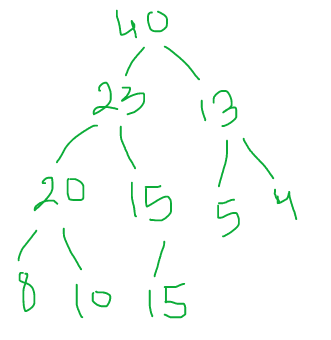 40
23 13
20 15 5 4
8 10 15